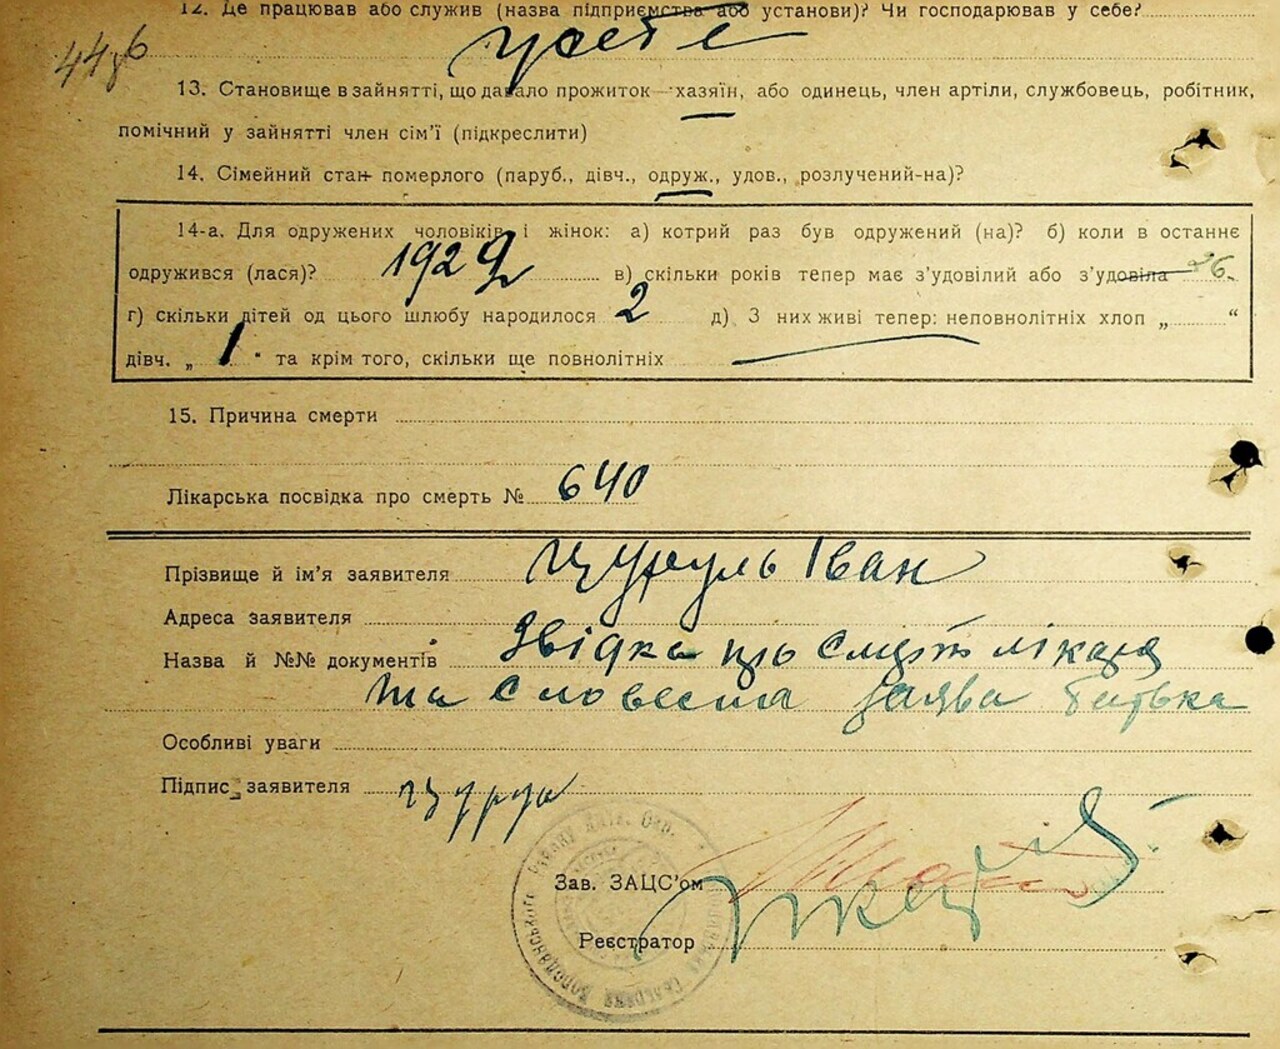 12. Де працював або служив (назва підприємства або установи)? Чи господарював у себе?
у себе
13. Становище в зайнятті, що давало прожиток—хазяїн, або одинець, член артіли, службовець, робітник,
помічний у зайнятті член сім'ї (підкреслити)
14. Сімейний стан померлого (паруб., дівч., одруж., удов., розлучений-на)?
14-а. Для одружених чоловіків і жінок: а) котрий раз був одружений (на)? б) коли в останнє
одружився (лася)? 1929 в) скільки років тепер має з'удовілий або з'удовіла 26
г) скільки дітей од цього шлюбу народилося 2 д) З них живі тепер: неповнолітніх хлоп „ “
дівч. „ 1 “ та крім того, скільки ще повнолітніх
15. Причина смерти
Лікарська посвідка про смерть № 640
Прізвище й ім'я заявителя Цуруль Іван
Адреса заявителя
Назва й №№ документів Звідка про смерть лікаря
та словесна заява батька
Особливі уваги
Підпис заявителя
Зав. ЗАЦС'ом
Реєстратор